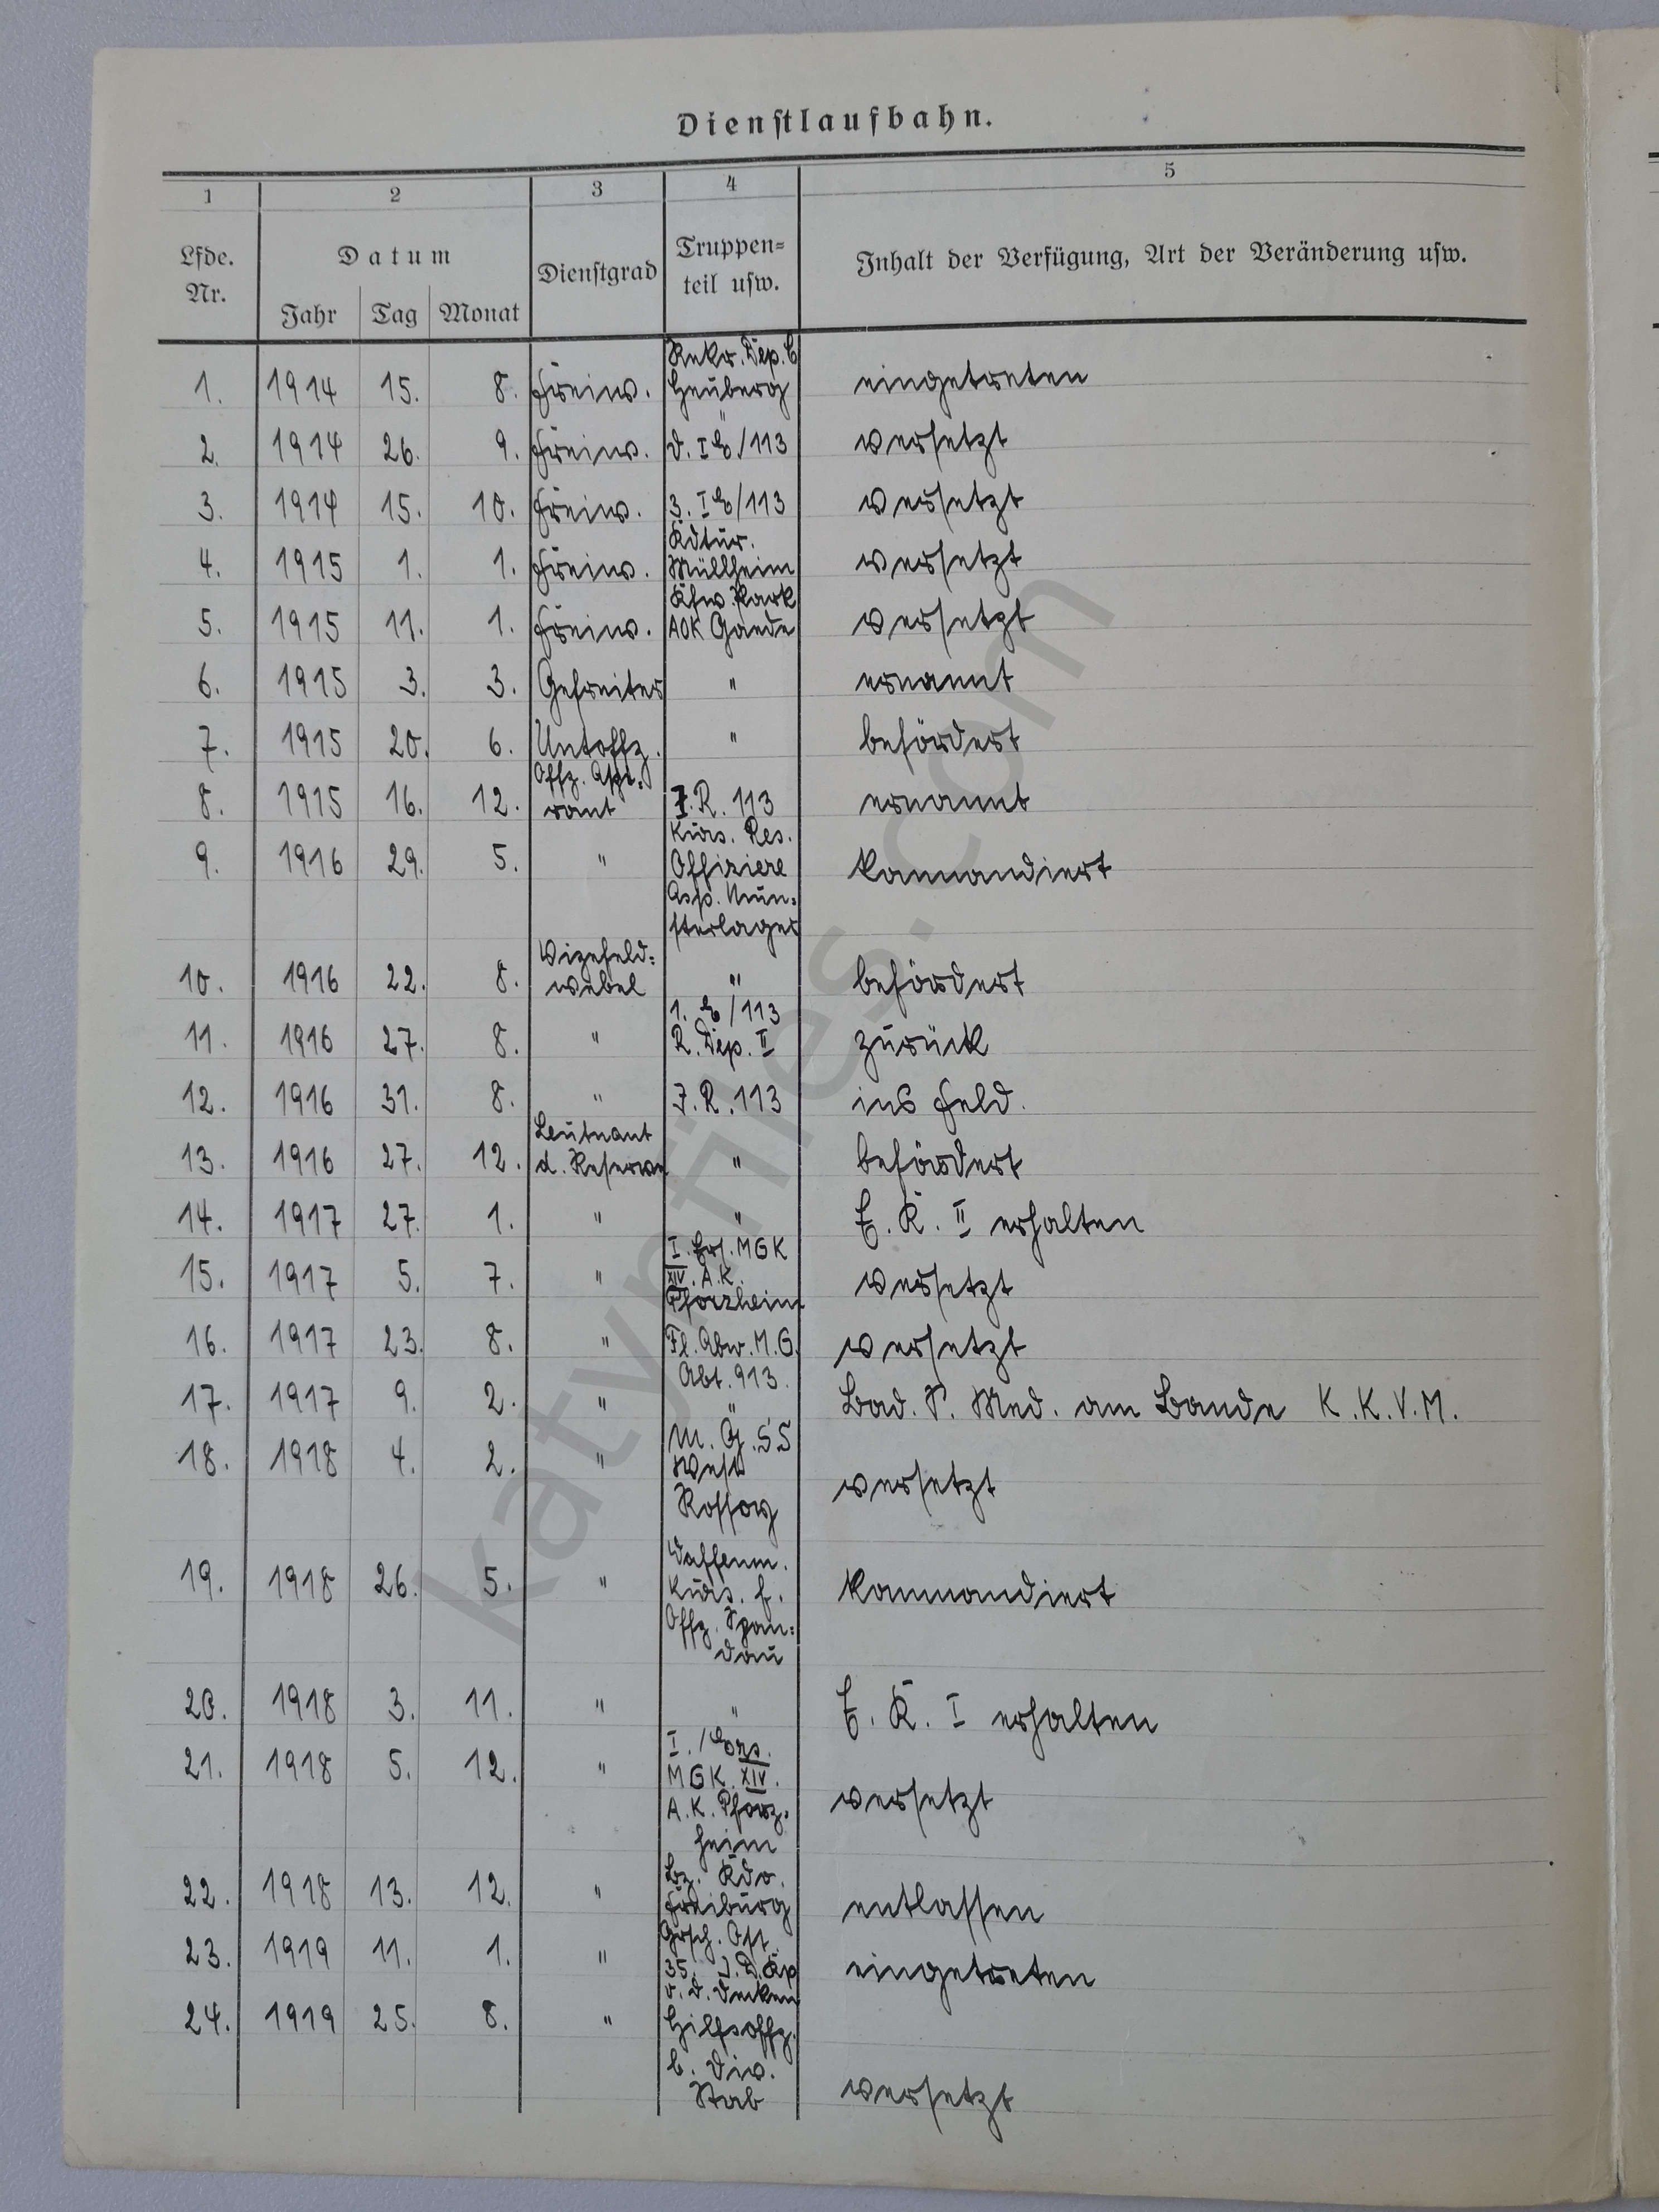 Dienstlaufbahn.
1 2 3 4 5
Lfde. Nr. Datum Jahr Tag Monat Dienstgrad Truppen- teil usw. Inhalt der Verfügung, Art der Veränderung usw.
1. 1914 15. 8. Freiw. Rekr. Dep. Heuberg eingetreten
2. 1914 26. 9. Freiw. I E/113 versetzt
3. 1914 15. 10. Freiw. 3. I E/113 versetzt
4. 1915 1. 1. Freiw. Kdtur. Müllheim versetzt
5. 1915 11. 1. Freiw. Kfw. Park AOK Gaede versetzt
6. 1915 3. 3. Gefreiter " ernannt
7. 1915 20. 6. Untoffz. " befördert
8. 1915 16. 12. Offz. Aspi- rant I.R. 113 ernannt
9. 1916 29. 5. " Kurs. Res. Offiziere Asp. Mün- sterlager kommandiert
10. 1916 22. 8. Vizefeld- webel " befördert
11. 1916 27. 8. " 1. E/113 R. Dep. II zurück
12. 1916 31. 8. " I.R. 113 ins Feld.
13. 1916 27. 12. Leutnant d. Reserve " befördert
14. 1917 27. 1. " " E. K. II erhalten
15. 1917 5. 7. " I. Ers. MGK XIV. A.K. Pforzheim versetzt
16. 1917 23. 8. " Fl. Abw. M.G. Abt. 913. versetzt
17. 1917 9. 2. " " Bad. S. Med. am Bande K.K.V.M.
18. 1918 4. 2. " M. G. S.S West versetzt
19. 1918 26. 5. " Waffenm. Kurs. f. Offz. Span- dau kommandiert
20. 1918 3. 11. " " E. K. I erhalten
21. 1918 5. 12. " I. /Ers. MGK. XIV. A.K. Pforz- heim versetzt
22. 1918 13. 12. " Bz. Kdo. Freiburg entlassen
23. 1919 11. 1. " Grsch. Ost 35. I.D. Kp v. d. Decken eingetreten
24. 1919 25. 8. " Hilfsoffz. b. Div. Stab versetzt
katynfiles.com